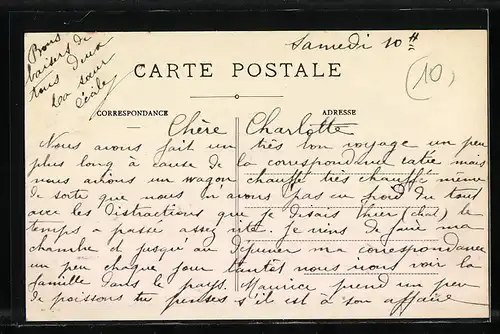 Bons
baisers de
tous deux
ta sœur
Cécile
Samedi 10 H
(10)
CARTE POSTALE
CORRESPONDANCE
ADRESSE
Chère Charlotte
Nous avons fait un très bon voyage un peu
plus long à cause de la correspondance ratée mais
nous avions un wagon chauffé très chauffé même
de sorte que nous n'avons pas eu froid du tout
avec les distractions que je disais hier (chat) le
temps a passé assez vite. Je viens de faire ma
chambre et jusqu'au déjeuner ma correspondance
un peu chaque jour tantôt nous irons voir la
famille dans le pays. Maurice prend un peu
de poissons tu penses s'il est à son affaire